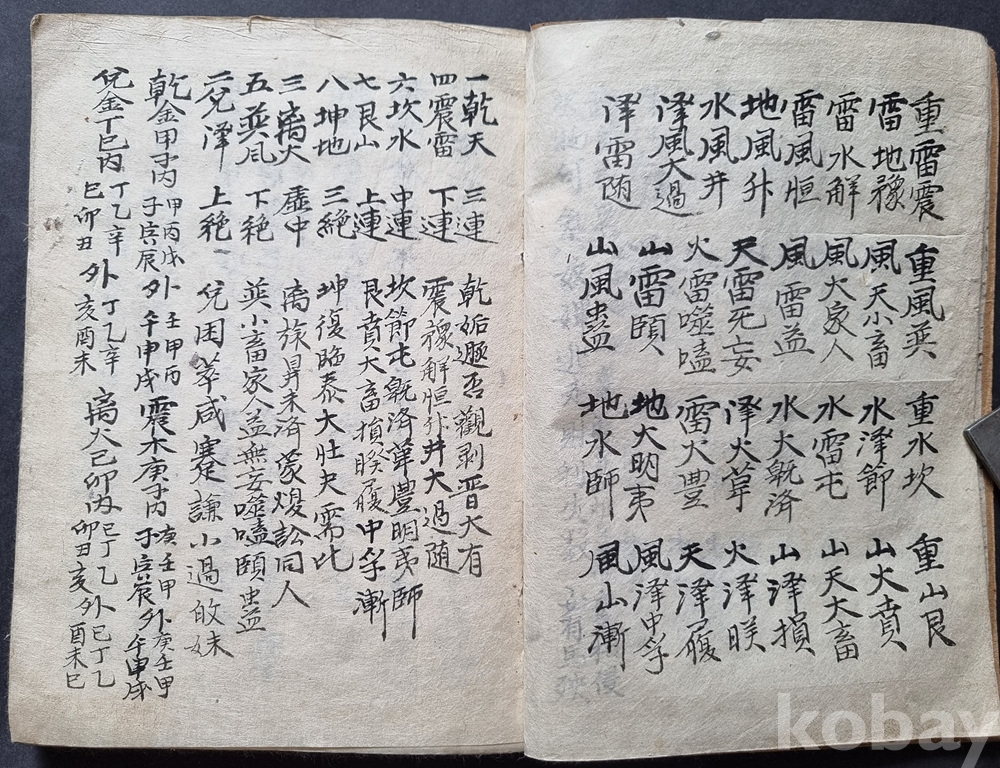 重雷震 重風巽 重水坎 重山艮
雷地豫 風天小畜 水泽節 山火賁
雷水解 風火家人 水雷屯 山天大畜
雷風恒 風雷益 水火既済 山泽損
地風升 天雷无妄 泽火革 火泽睽
水風井 火雷噬嗑 雷火豊 天泽履
泽風大過 山雷頤 地火明夷 風泽中孚
泽雷随 山風蠱 地水師 風山漸
一乾天 三連 乾姤遯否觀剥晋大有
四震雷 下連 震豫解恒升井大過随
六坎水 中連 坎節屯既済革豊明夷師
七艮山 上連 艮賁大畜損睽履中孚漸
八坤地 三絶 坤復臨泰大壮夬需比
三离火 虚中 离旅鼎未済蒙渙訟同人
五巽风 下絶 巽小畜家人益無妄噬嗑頤蠱
二兌泽 上絶 兌困萃咸蹇謙小過皈妹
乾金甲子内 甲丙戊 子寅辰 外 壬甲丙 午申戌 震木庚子内 庚壬甲 子寅辰 外 庚壬甲 午申戌
兌金丁巳内 丁乙辛 巳卯丑 外 丁乙辛 亥酉未 离火己卯内 己丁乙 卯丑亥 外 己丁乙 酉未巳
kobay